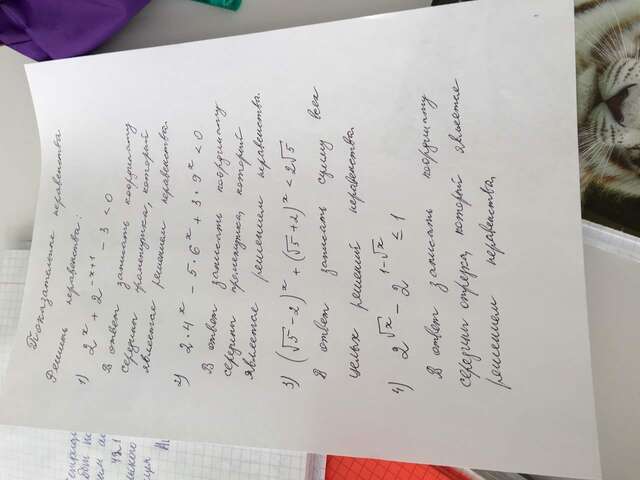 Показательные неравенства
Решить неравенства:
1) 2^x + 2^{-x+1} - 3 < 0
В ответ записать координату
середины промежутка, который
является решением неравенства.
2) 2·4^x - 5·6^x + 3·9^x < 0
В ответ записать координату
середины промежутка, который
является решением неравенства.
3) (√5-2)^x + (√5+2)^x < 2√5
В ответ записать сумму всех
целых решений неравенства.
4) 2^{√x} - 2^{1-√x} ≤ 1
В ответ записать координату
середины отрезка, который является
решением неравенства.